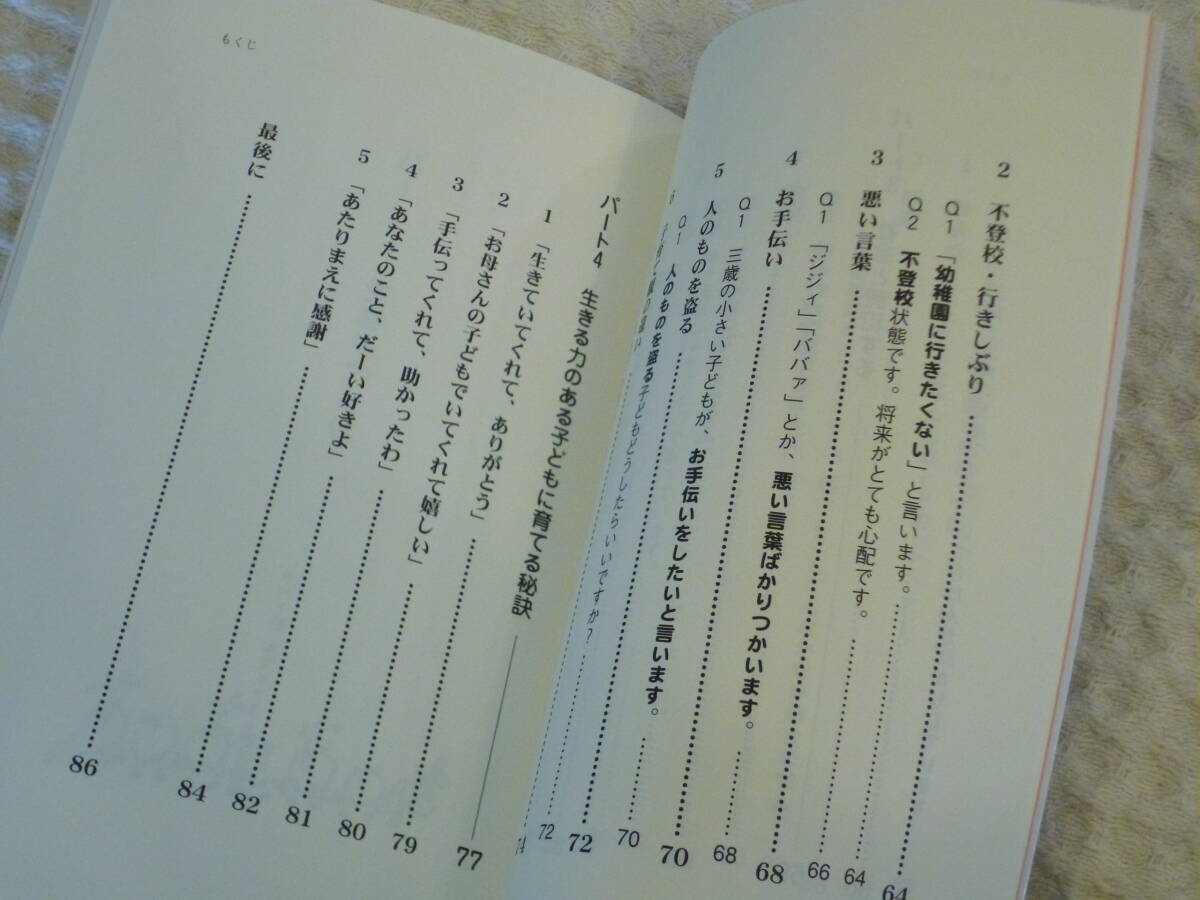 2 不登校・行きしぶり……64
Q1 「幼稚園に行きたくない」と言います。……64
Q2 不登校状態です。将来がとても心配です。……66
3 悪い言葉……68
Q1 「ジジィ」「ババァ」とか、悪い言葉ばかりつかいます。……68
4 お手伝い……70
Q1 三歳の小さい子どもが、お手伝いをしたいと言います。……70
5 人のものを盗る……72
Q1 人のものを盗る子どもどうしたらいいですか?……72
6 ……74
もくじ
パート4 生きる力のある子どもに育てる秘訣――77
1 「生きていてくれて、ありがとう」……79
2 「お母さんの子どもでいてくれて嬉しい」……80
3 「手伝ってくれて、助かったわ」……81
4 「あなたのこと、だーい好きよ」……82
5 「あたりまえに感謝」……84
最後に……86